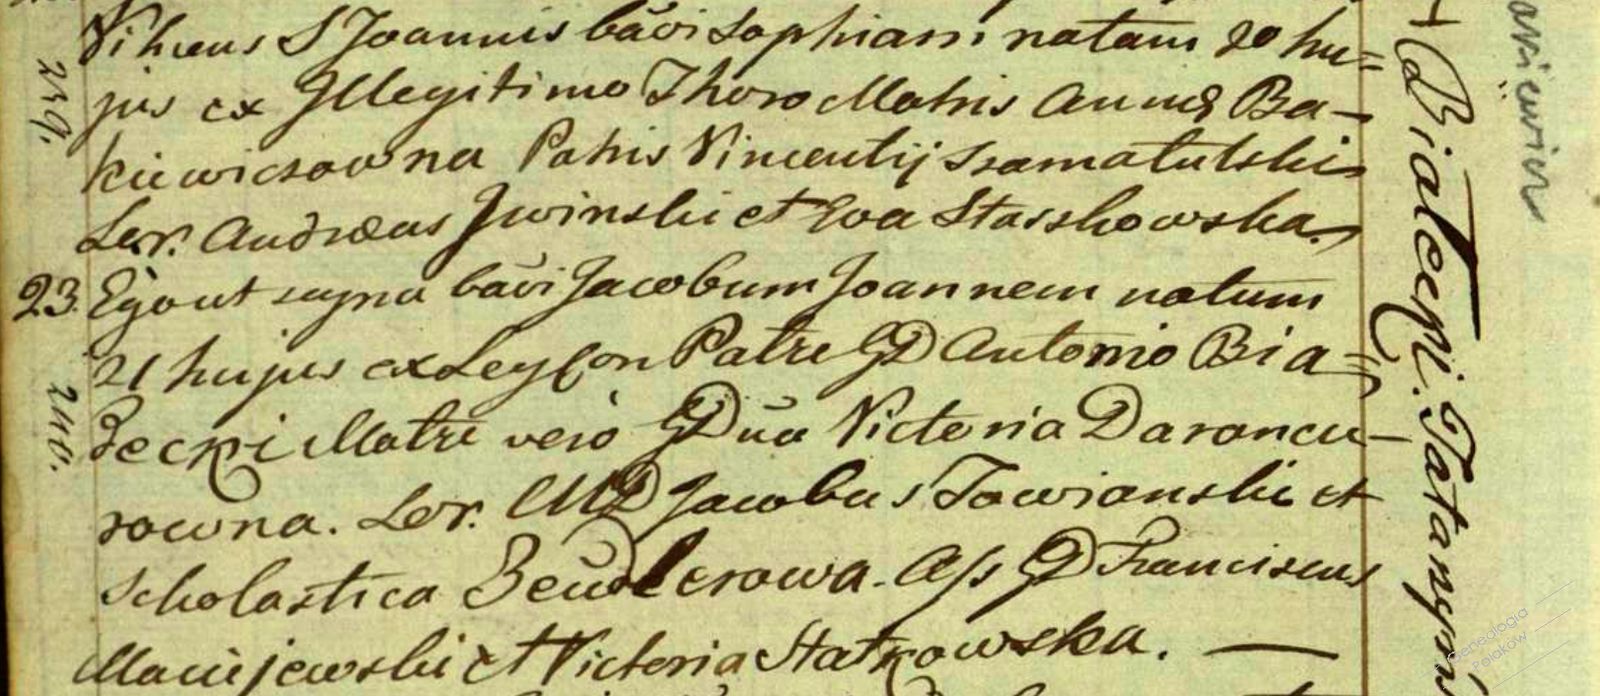 Vihens S Joannis bãvi Sophiam natam 20 hu=
239.
jus ex Jllegitimo Thoro Matris Annæ Ba-
kiewiczowna Patris Vincentij Szamatulski
Lev. Andreas Jwinski et Ewa Staszkowska.
23. Ego ut supra bãvi Jacobum Joannem natum
21 hujus ex Leg Con Patre GD Antonio Bia=
240.
decki Matre vero GDña Victoria Darancu-
rowna. Lev. MD Jacobus Towianski et
Scholastica Beudlerowa. Ass GD Franciscus
Maciejewski et Victoria Statkowska. —